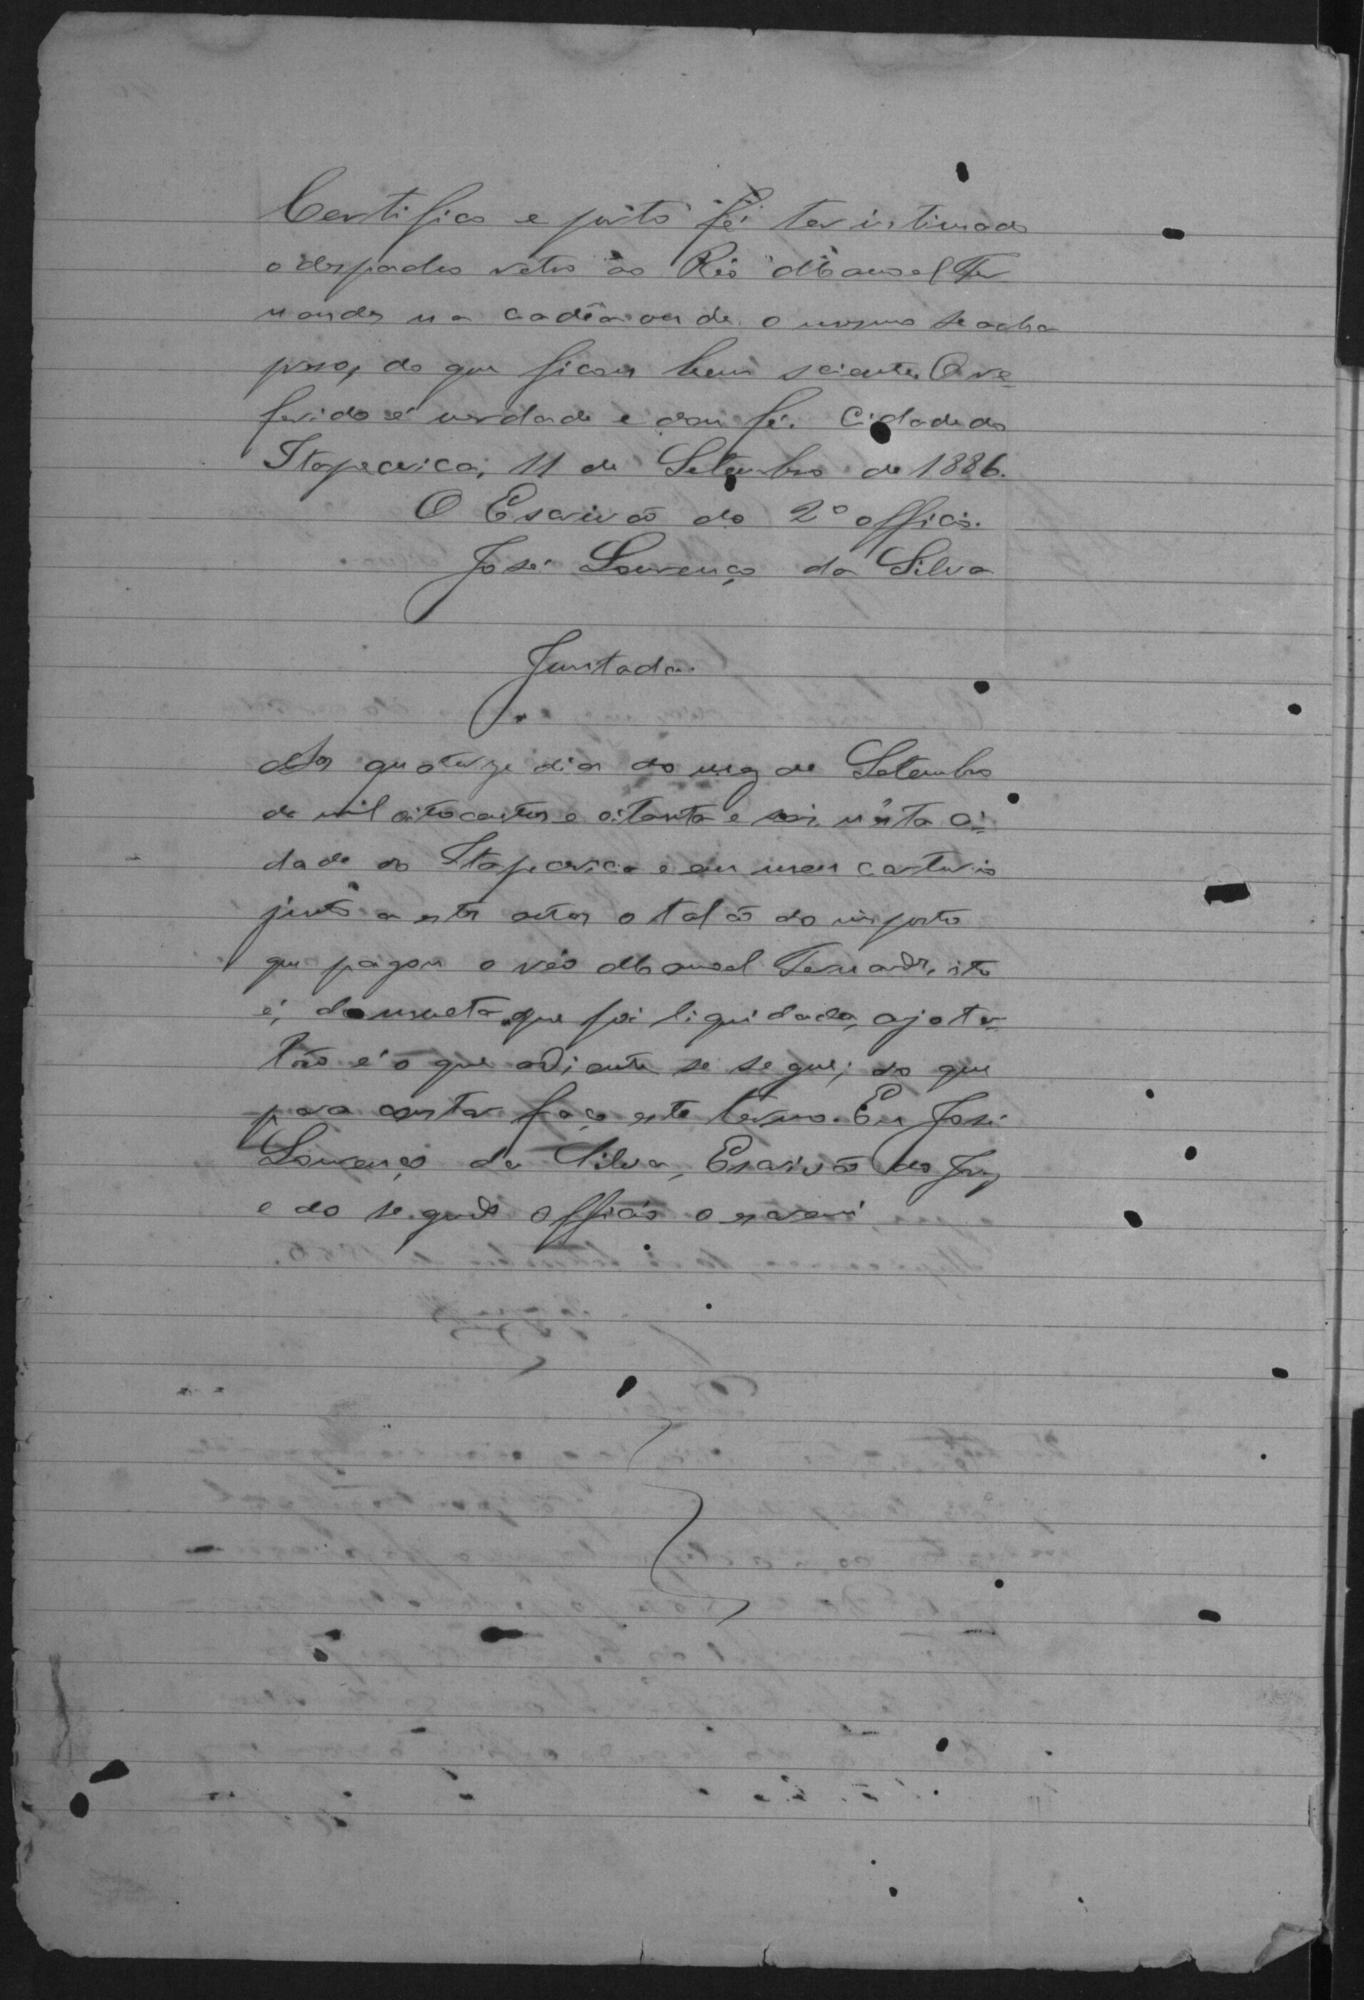 Certifico e porto fé ter intimado
o despacho retro ao Réo Manoel Fer
nandes na cadêa onde o mesmo se acha
preso, do que ficou bem sciente. O re-
ferido é verdade e dou fé. Cidade do
Itapecerica, 11 de Setembro de 1886.
O Escrivão do 2º officio.
José Lourenço da Silva
Juntada.
Aos quatorze dias do mez de Setembro
de mil oitocentos e oitenta e seis, n'esta ci-
dade do Itapecerica e em meu cartorio
junto a estes autos o talão do imposto
que pagou o réo Manoel Fernandes, isto
é, da multa que foi liquidada, cujo ta-
lão é o que adiante se segue; do que
para constar faço este termo. Eu José
Lourenço da Silva, Escrivão do Jury
e do segundo officio o escrevi